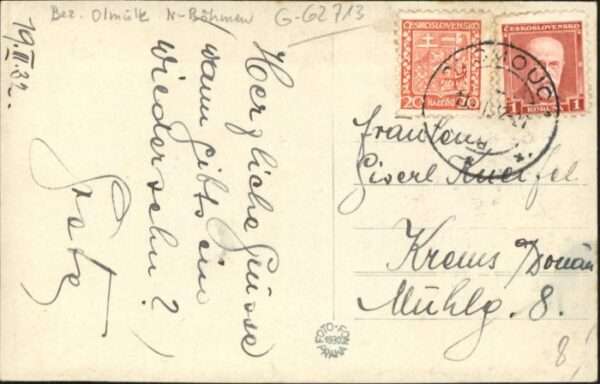 Bez. Olmütz N-Böhmen G-G2713
19.III.32.
Herzliche Grüsse
wann gibts ein
wiedersehn?
ČESKOSLOVENSKO
20
HALÉŘŮ
ČESKOSLOVENSKO
1 KORUNA 1
OLOMOUC
Fräulein
Krems/Donau
Mühlg. 8.
FOTO-FON
PRAHA
8,